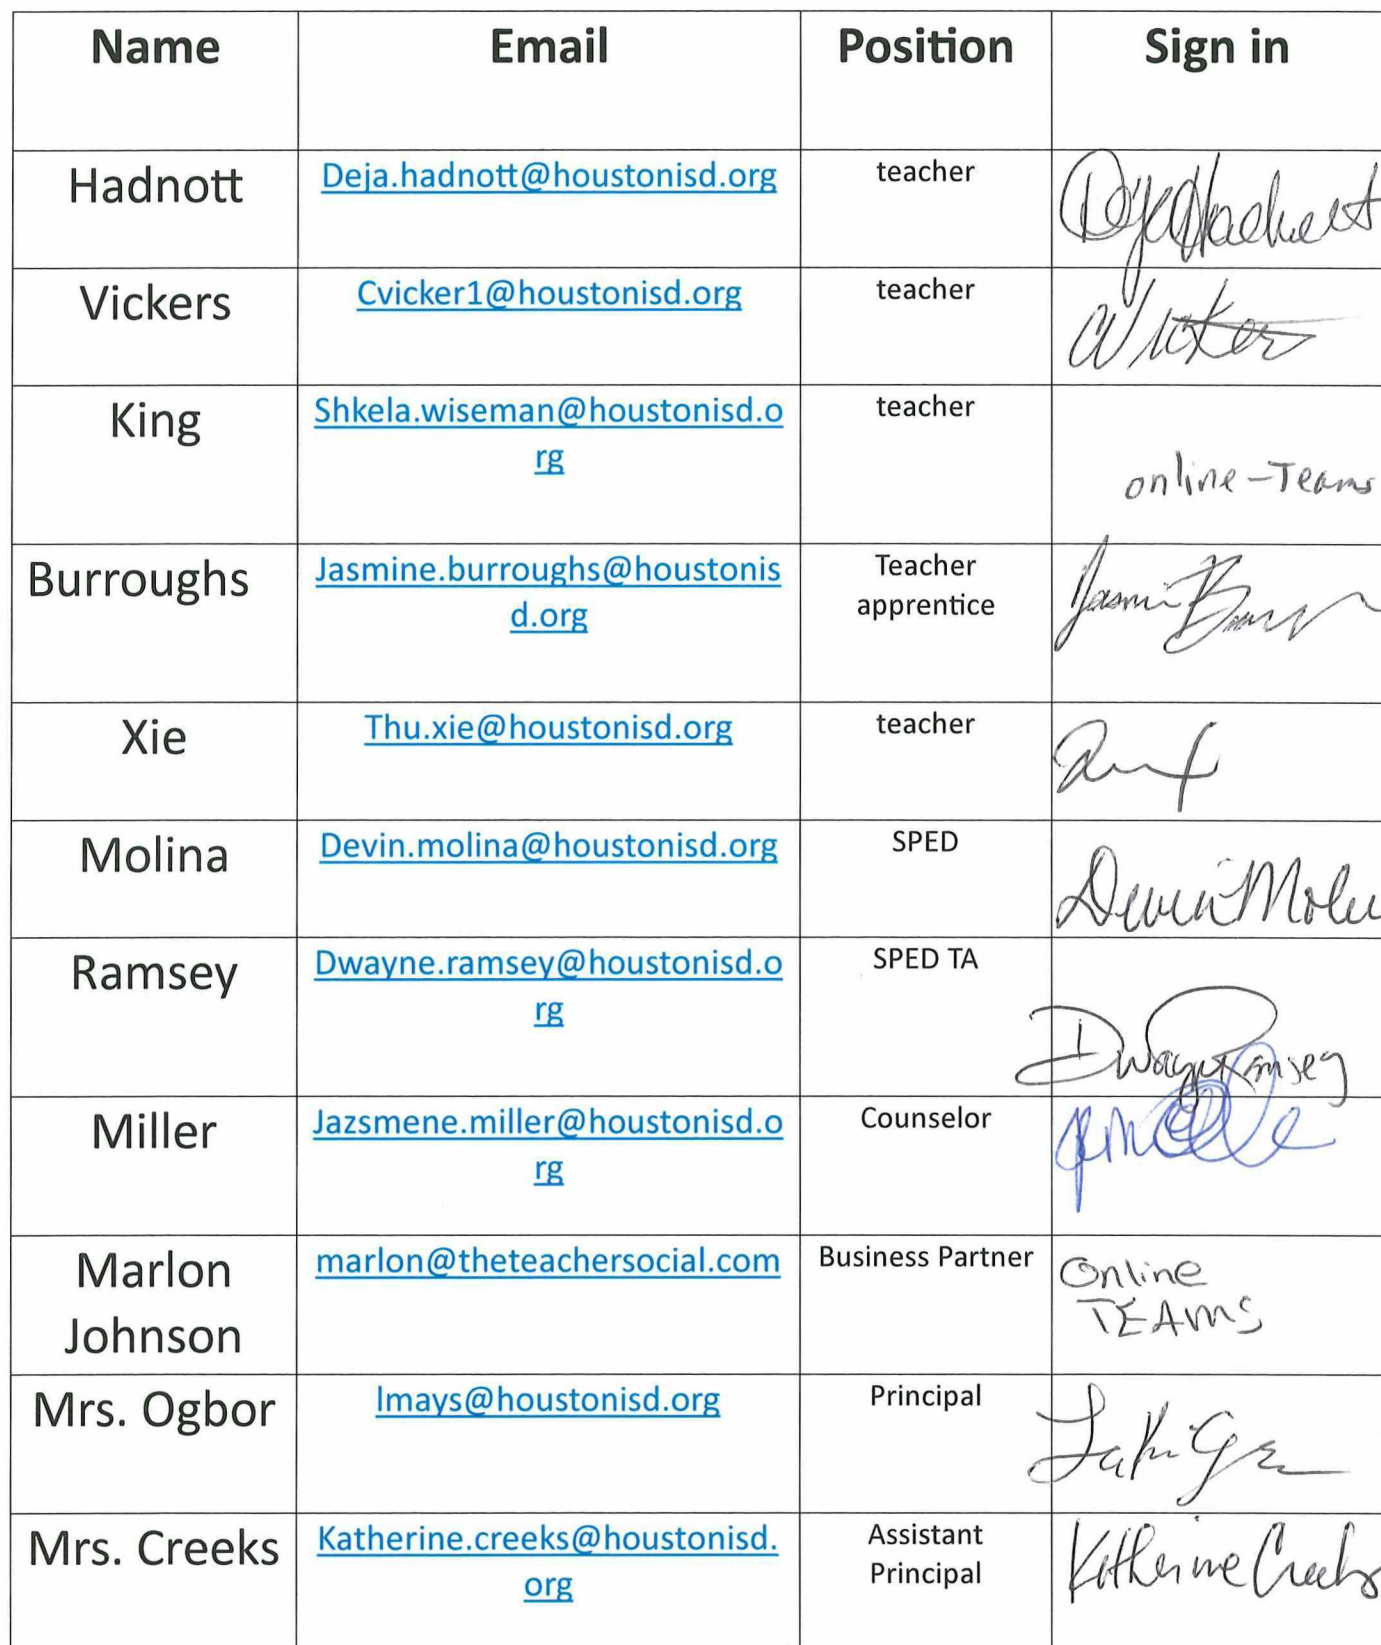 Name Email Position Sign in
Hadnott Deja.hadnott@houstonisd.org teacher
Vickers Cvicker1@houstonisd.org teacher
King Shkela.wiseman@houstonisd.o teacher
rg
online-Teams
Burroughs Jasmine.burroughs@houstonis Teacher
d.org apprentice
Xie Thu.xie@houstonisd.org teacher
Molina Devin.molina@houstonisd.org SPED
Ramsey Dwayne.ramsey@houstonisd.o SPED TA
rg
Dwayne Ramsey
Miller Jazsmene.miller@houstonisd.o Counselor
rg
Marlon marlon@theteachersocial.com Business Partner Online
Johnson TEAMS
Mrs. Ogbor lmays@houstonisd.org Principal
Mrs. Creeks Katherine.creeks@houstonisd. Assistant Katherine Creeks
org Principal